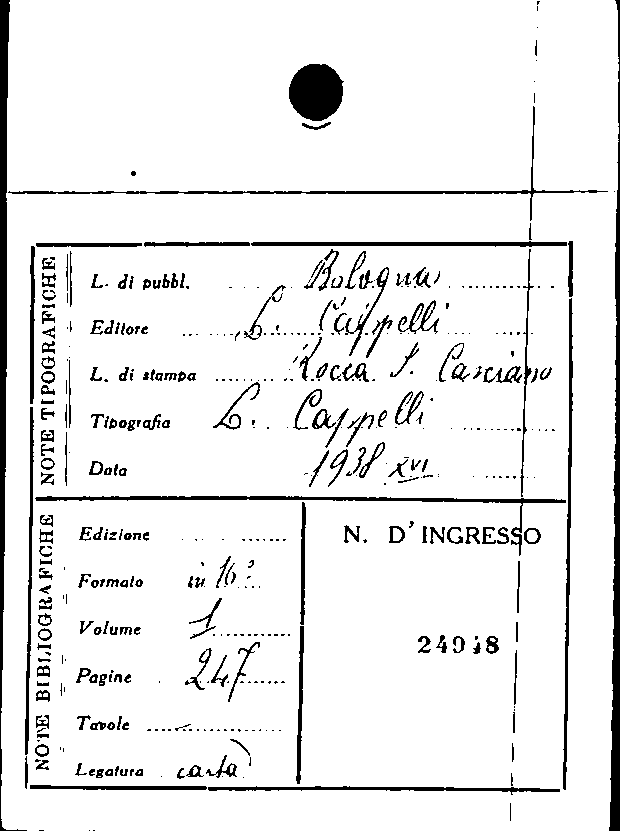 NOTE TIPOGRAFICHE
L. di pubbl. Bologna
Editore L. Cappelli
L. di stampa Rocca S. Casciano
Tipografia L. Cappelli
Data 1938 XVI
NOTE BIBLIOGRAFICHE
Edizione
Formato in 16º
Volume 1
Pagine 247
Tavole
Legatura carta
N. D'INGRESSO
24948